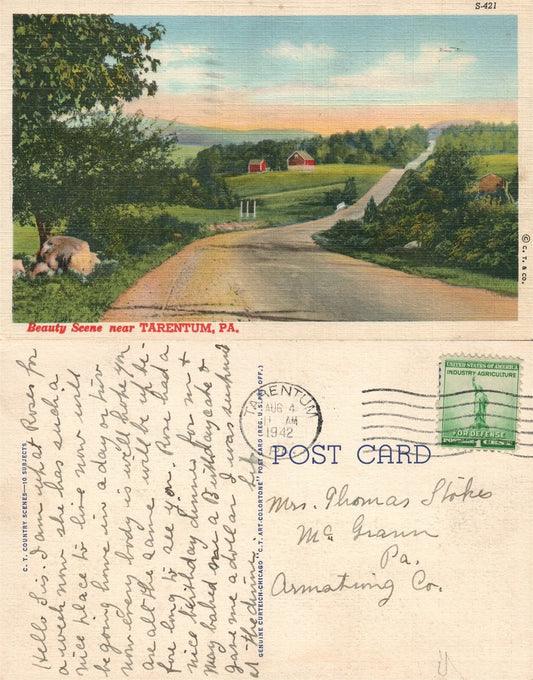 S-421
© C. T. & CO.
Beauty Scene near TARENTUM, PA.
C. T. COUNTRY SCENES—10 SUBJECTS
Hello Sis. I am what Roses for
a week now she has such a
nice place to live now will
be going home in a day or two
now every body is well hope you
are all the same will be up be-
fore long to see you. Rose had a
nice birthday dinner for m +
May baked me a Birthday cake &
gave me a dollar I was surprised
at the dinner
GENUINE CURTEICH-CHICAGO "C.T. ART-COLORTONE" POST CARD (REG. U.S. PAT. OFF.)
TARENTUM
AUG 4
AM
1942
PA.
UNITED STATES OF AMERICA
INDUSTRY-AGRICULTURE
FOR DEFENSE
POST CARD
Mrs. Thomas Stokes
Mc Grann
Pa.
Armstrong Co.